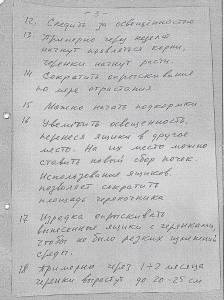 - 3 -
12. Следить за освещённостью
13 Примерно через неделю
начнут появляться корни,
черенки начнут расти.
14 Сократить опрыскивание
по мере отрастания
15 Можно начать подкормки
16 Увеличить освещенность,
перенеся ящики в другое
место. На их место можно
ставить новый сбор почек
Использование ящиков
позволяет сократить
площадь череночника
17 Изредка опрыскивать
вынесенные ящики с черенками,
чтобы не было резких изменений
среды.
18 Примерно через 1÷2 месяца
черенки вырастут до 20-25 см